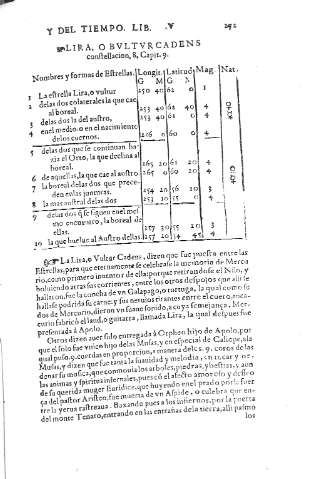 Y DEL TIEMPO. LIB. V 292
LIRA, O BVLTVR CADENS
constellacion, 8, Capit. 9.
Nombres y formas de Estrellas. Longit. Latitud Mag. Nat.
G M G M
1 La estrella Lira, o vultur 250 40 62 0 1
2 de las dos colaterales la que cae
al boreal. 253 40 62 40 4
3 de las dos la del austro, 253 40 61 0 4
4 en el medio o en el nacimiento
de los cuernos. 256 0 60 0 4
5 de las dos que se continuan ha
zia el Orto, la que declina al
boreal. 265 20 61 20 4
6 de aquellas, la que cae al austro 265 0 60 20 4
7 la boreal de las dos que prece-
den en las junturas. 254 20 56 20 3
8 la mas austral de las dos 253 10 55 0 4
9 de las dos q̃ se siguen en el mes
mo encuentro, la boreal de
ellas. 257 30 55 20 3
10 la que huelue al Austro dellas. 257 20 54 45 4
La Lira, o Vultur Cadens, dizen que fue puesta entre las
Estrellas, para que eternamente se celebrasse la memoria de Mercu
rio, como primero inuentor de ella: porque retirandose el Nilo, y
boluiendo atras sus corrientes, entre los otros despojos que alli se
hallaron, fue la concha de vn Galapago, o tortuga, la qual como se
hallasse podrida su carne, y sus neruios tirantes entre el cuero, toca-
dos de Mercurio, dieron vn sonido sonoro, a cuya semejança, Mer-
curio fabricò el laud, o guitarra, llamada Lira, la qual despues fue
presentada à Apolo.
Otros dizen auer sido entregada à Orpheo hijo de Apolo, por
que el solo fue vnico hijo de las Musas, y en especial de Caliope, a la
qual puso 9. cuerdas en proporcion, a manera de los 9. coros de las
Musas, y dizen que fue tanta la suauidad y melodia, en tocar y or-
denar su musica, que conmouia los arboles, piedras, y bestias, y aun
las animas y spiritus infernales, pues co el afecto amoroso y desseo
de su querida muger Euridice, que huyendo en el prado por la fuer
ça del pastor Aristeo, fue muerta de vn Aspide, o culebra que en-
tre la yerua rastreaua. Baxando pues a los infiernos, por la puerta
del monte Tenaro, entrando en las entrañas de la tierra, alli pasmò
los